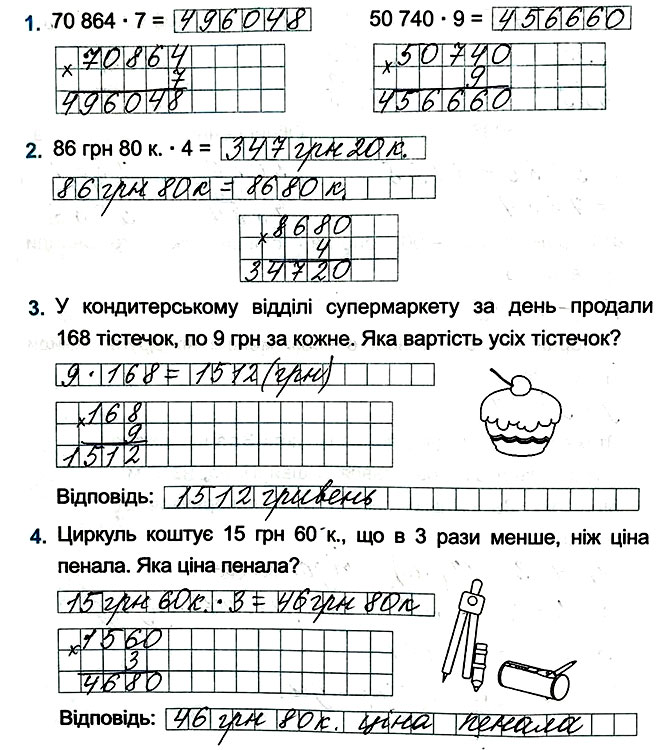 1. 70 864 · 7 = 496048 50 740 · 9 = 456660
× 70864 × 50740
7 9
496048 456660
2. 86 грн 80 к. · 4 = 347 грн 20 к.
86 грн 80 к = 8680 к.
× 8680
4
34720
3. У кондитерському відділі супермаркету за день продали
168 тістечок, по 9 грн за кожне. Яка вартість усіх тістечок?
9 · 168 = 1512 (грн)
× 168
9
1512
Відповідь: 1512 гривень
4. Циркуль коштує 15 грн 60 к., що в 3 рази менше, ніж ціна
пенала. Яка ціна пенала?
15 грн 60 к. · 3 = 46 грн 80 к
× 1560
3
4680
Відповідь: 46 грн 80 к. ціна пенала